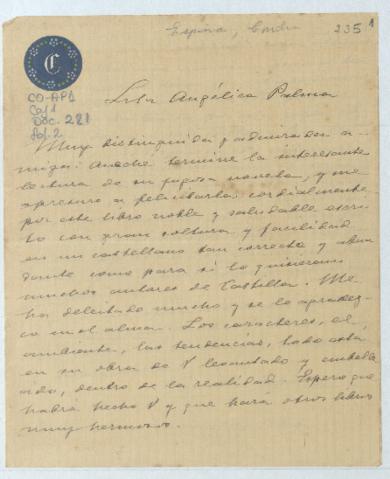 Espina, Concha
235 1
C
CO-AP1
Caj 1
Doc. 281
fol. 2
Srta Angélica Palma
Muy distinguida y admirada a-
miga: Anoche terminé la interesante
lectura de su jugosa novela, y me
apresuro a felicitarla cordialmente
por este libro noble y saludable escri-
to con gran soltura y facilidad
en un castellano tan correcto y abun
dante como para sí lo quisieran
muchos autores de Castilla. Me
ha deleitado mucho y se lo agradez-
co en el alma. Los carácteres, el
ambiente, las tendencias, todo está
en su obra de V levantado y embelle
cido, dentro de la realidad. Espero que
habrá hecho V y que hará otros libros
muy hermosos.